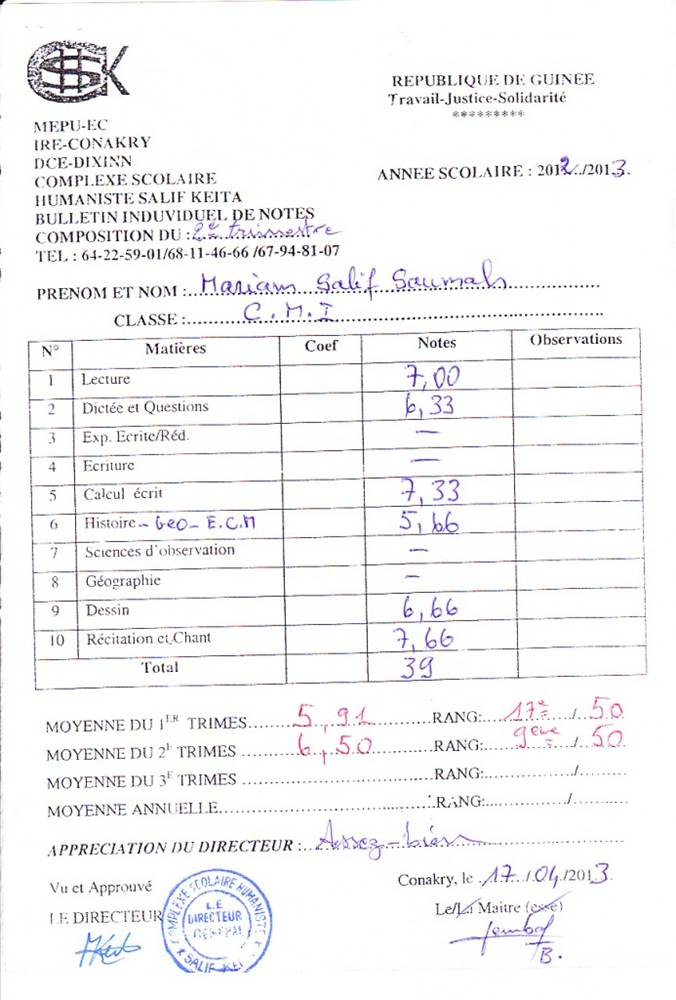 REPUBLIQUE DE GUINEE
Travail-Justice-Solidarité
*********
MEPU-EC
IRE-CONAKRY
DCE-DIXINN
COMPLEXE SCOLAIRE
HUMANISTE SALIF KEITA
BULLETIN INDUVIDUEL DE NOTES
COMPOSITION DU : 2e trimestre
TEL : 64-22-59-01/68-11-46-66 /67-94-81-07
ANNEE SCOLAIRE : 2012../2013.
PRENOM ET NOM :... Mariam Salif Saumah
CLASSE :... C.M.I
N° Matières Coef Notes Observations
1 Lecture 7,00
2 Dictée et Questions 6,33
3 Exp. Ecrite/Réd. —
4 Ecriture —
5 Calcul écrit 7,33
6 Histoire - Geo - E.C.M 5,66
7 Sciences d'observation —
8 Géographie —
9 Dessin 6,66
10 Récitation et Chant 7,66
Total 39
MOYENNE DU 1ER TRIMES... 5,91 ...RANG:... 17e / 50
MOYENNE DU 2E TRIMES ... 6,50 ...RANG:... 9ème / 50
MOYENNE DU 3E TRIMES ...RANG:.../...
MOYENNE ANNUELLE...RANG:.../...
APPRECIATION DU DIRECTEUR :... Assez-bien
Vu et Approuvé
LE DIRECTEUR
COMPLEXE SCOLAIRE HUMANISTE
LE
DIRECTEUR
GENERAL
SALIF KEITA
Conakry, le 17/04/2013.
Le/La Maitre (esse)
B.